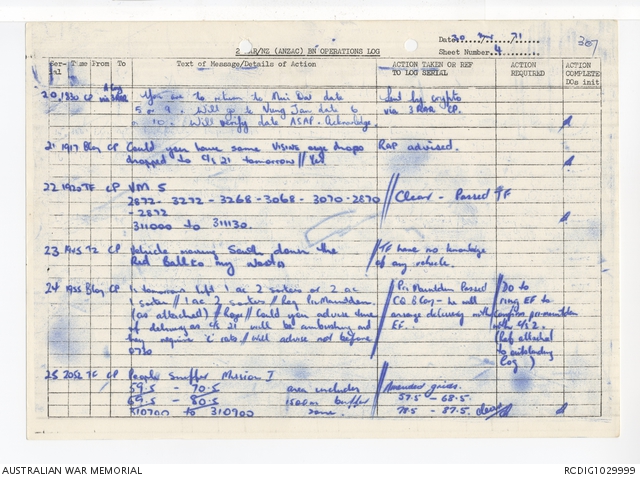 Date 30 71
307
2 RAR/NZ (ANZAC) BN OPERATIONS LOG
Sheet Number 4
Ser-ial Time From To Text of Message/Details of Action ACTION TAKEN OR REF TO LOG SERIAL ACTION REQUIRED ACTION COMPLETE DOs init
20 1830 CP You are to return to Nui Dat date Sent by crypto
5 or 9. Will go to Vung Tau date 6 via 3 RAR CP.
or 10. Will verify date ASAP. Acknowledge.
21 1917 B Coy CP Could you have some eye drops RAP advised.
dropped to C/S 21 tomorrow // Yes
22 1920 TF CP VM 5
2872 - 3272 - 3268 - 3068 - 3070 - 2870 // Clear - Passed TF
- 2872
311000 to 311130.
23 1945 CP Vehicle moving South down the // TF have no knowledge
Red Ball to my of any vehicle.
24 1955 B Coy CP In tomorrow lift 1 ac 2 sorties or 2 ac // Pin Maunder Passed // DO to
1 sortie // 1 ac 2 sorties // Req Pin Maunder CQ B Coy - he will ring EF to
(as attached) // Rogs // Could you advise time arrange delivery with confirm
of delivery as 4/S 21 will be ambushing and EF. with
they require 'C' rats // Will advise not before (Ref attached
0730 to outstanding
Log)
25 2052 TF CP People Sniffer Mission I
59.5 - 70.5 area includes
69.5 - 80.5 1500m buffer 57.5 - 68.5
310700 to 310900 zone. 78.5 - 87.5 clear
AUSTRALIAN WAR MEMORIAL
RCDIG1029999